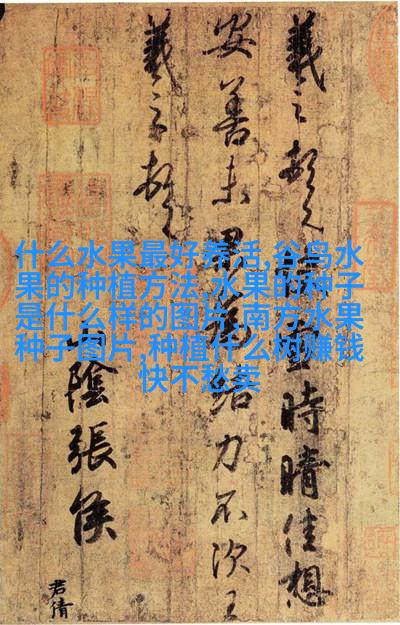 什么水果最好养活,谷鸟水
果的种植方法,水果的种子
是什么样的图片,南方水果
种子图片,种植什么树赚钱
快不愁卖
羲之頓首快雪時晴佳想
安善未果為結力不次王
羲之頓首
山陰張侯
君倩